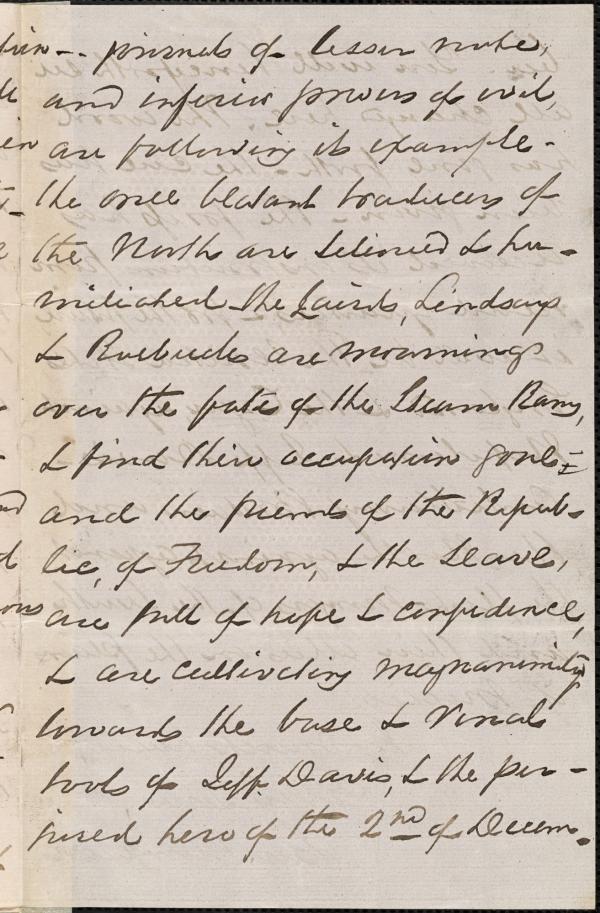 journals of lesser note,
and inferior powers of evil,
are following its example-
the once blatant traducers of
the North are silenced & hu-
miliated - the Lairds, Lindsays
& Roebucks are mourning
over the fate of the Steam Rams,
& find their occupation gone-
and the friends of the Repub-
lic, of Freedom, & the Slave,
are full of hope & confidence,
& are cultivating magnanimity
towards the base & venal
tools of Jeff. Davis, & the per-
jured hero of the 2nd of Decem-